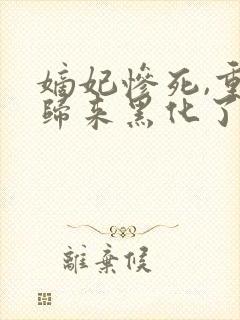 嫡妃慘死,重
歸来黑化了
離棄候